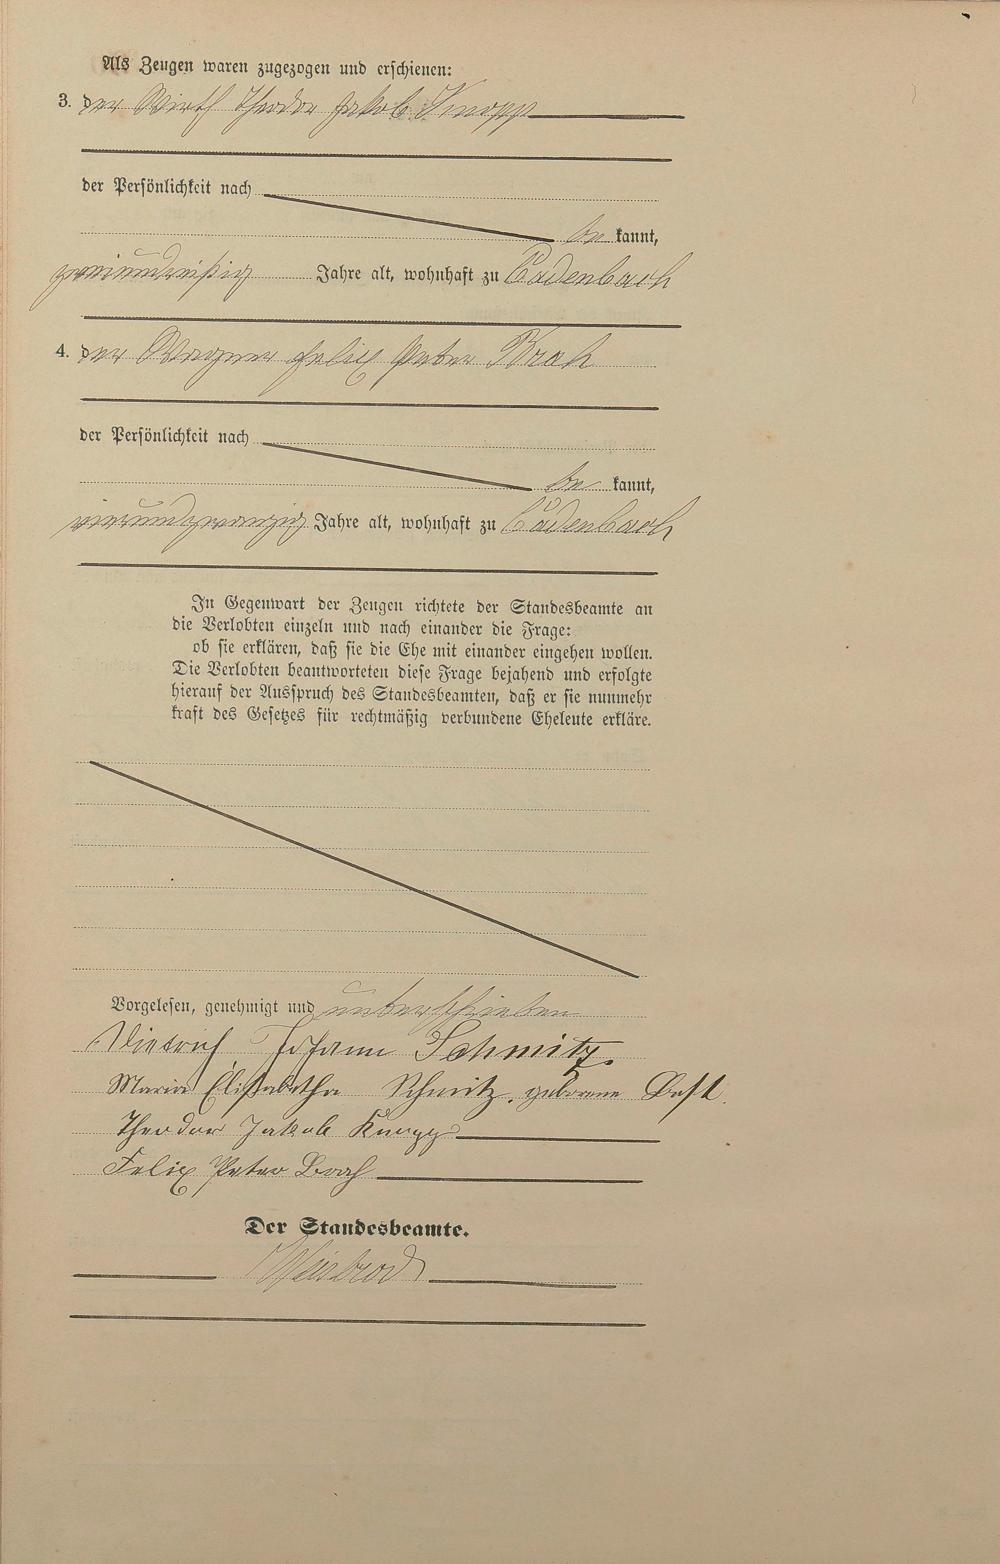 Als Zeugen waren zugezogen und erschienen:
3. der Wirth Theodor Jakob Knopp
der Persönlichkeit nach
be kannt,
zweiunddreißig Jahre alt, wohnhaft zu Cadenbach
4. der Wagner Felix Peter Brah
der Persönlichkeit nach
be kannt,
vierundzwanzig Jahre alt, wohnhaft zu Cadenbach
In Gegenwart der Zeugen richtete der Standesbeamte an
die Verlobten einzeln und nach einander die Frage:
ob sie erklären, daß sie die Ehe mit einander eingehen wollen.
Die Verlobten beantworteten diese Frage bejahend und erfolgte
hierauf der Ausspruch des Standesbeamten, daß er sie nunmehr
kraft des Gesetzes für rechtmäßig verbundene Eheleute erkläre.
Vorgelesen, genehmigt und unterschrieben
Dietrich Johann Schmitz.
Maria Elisabetha Schmitz. geborene
Theodor Jakob Knopp
Felix Peter Brah
Der Standesbeamte.